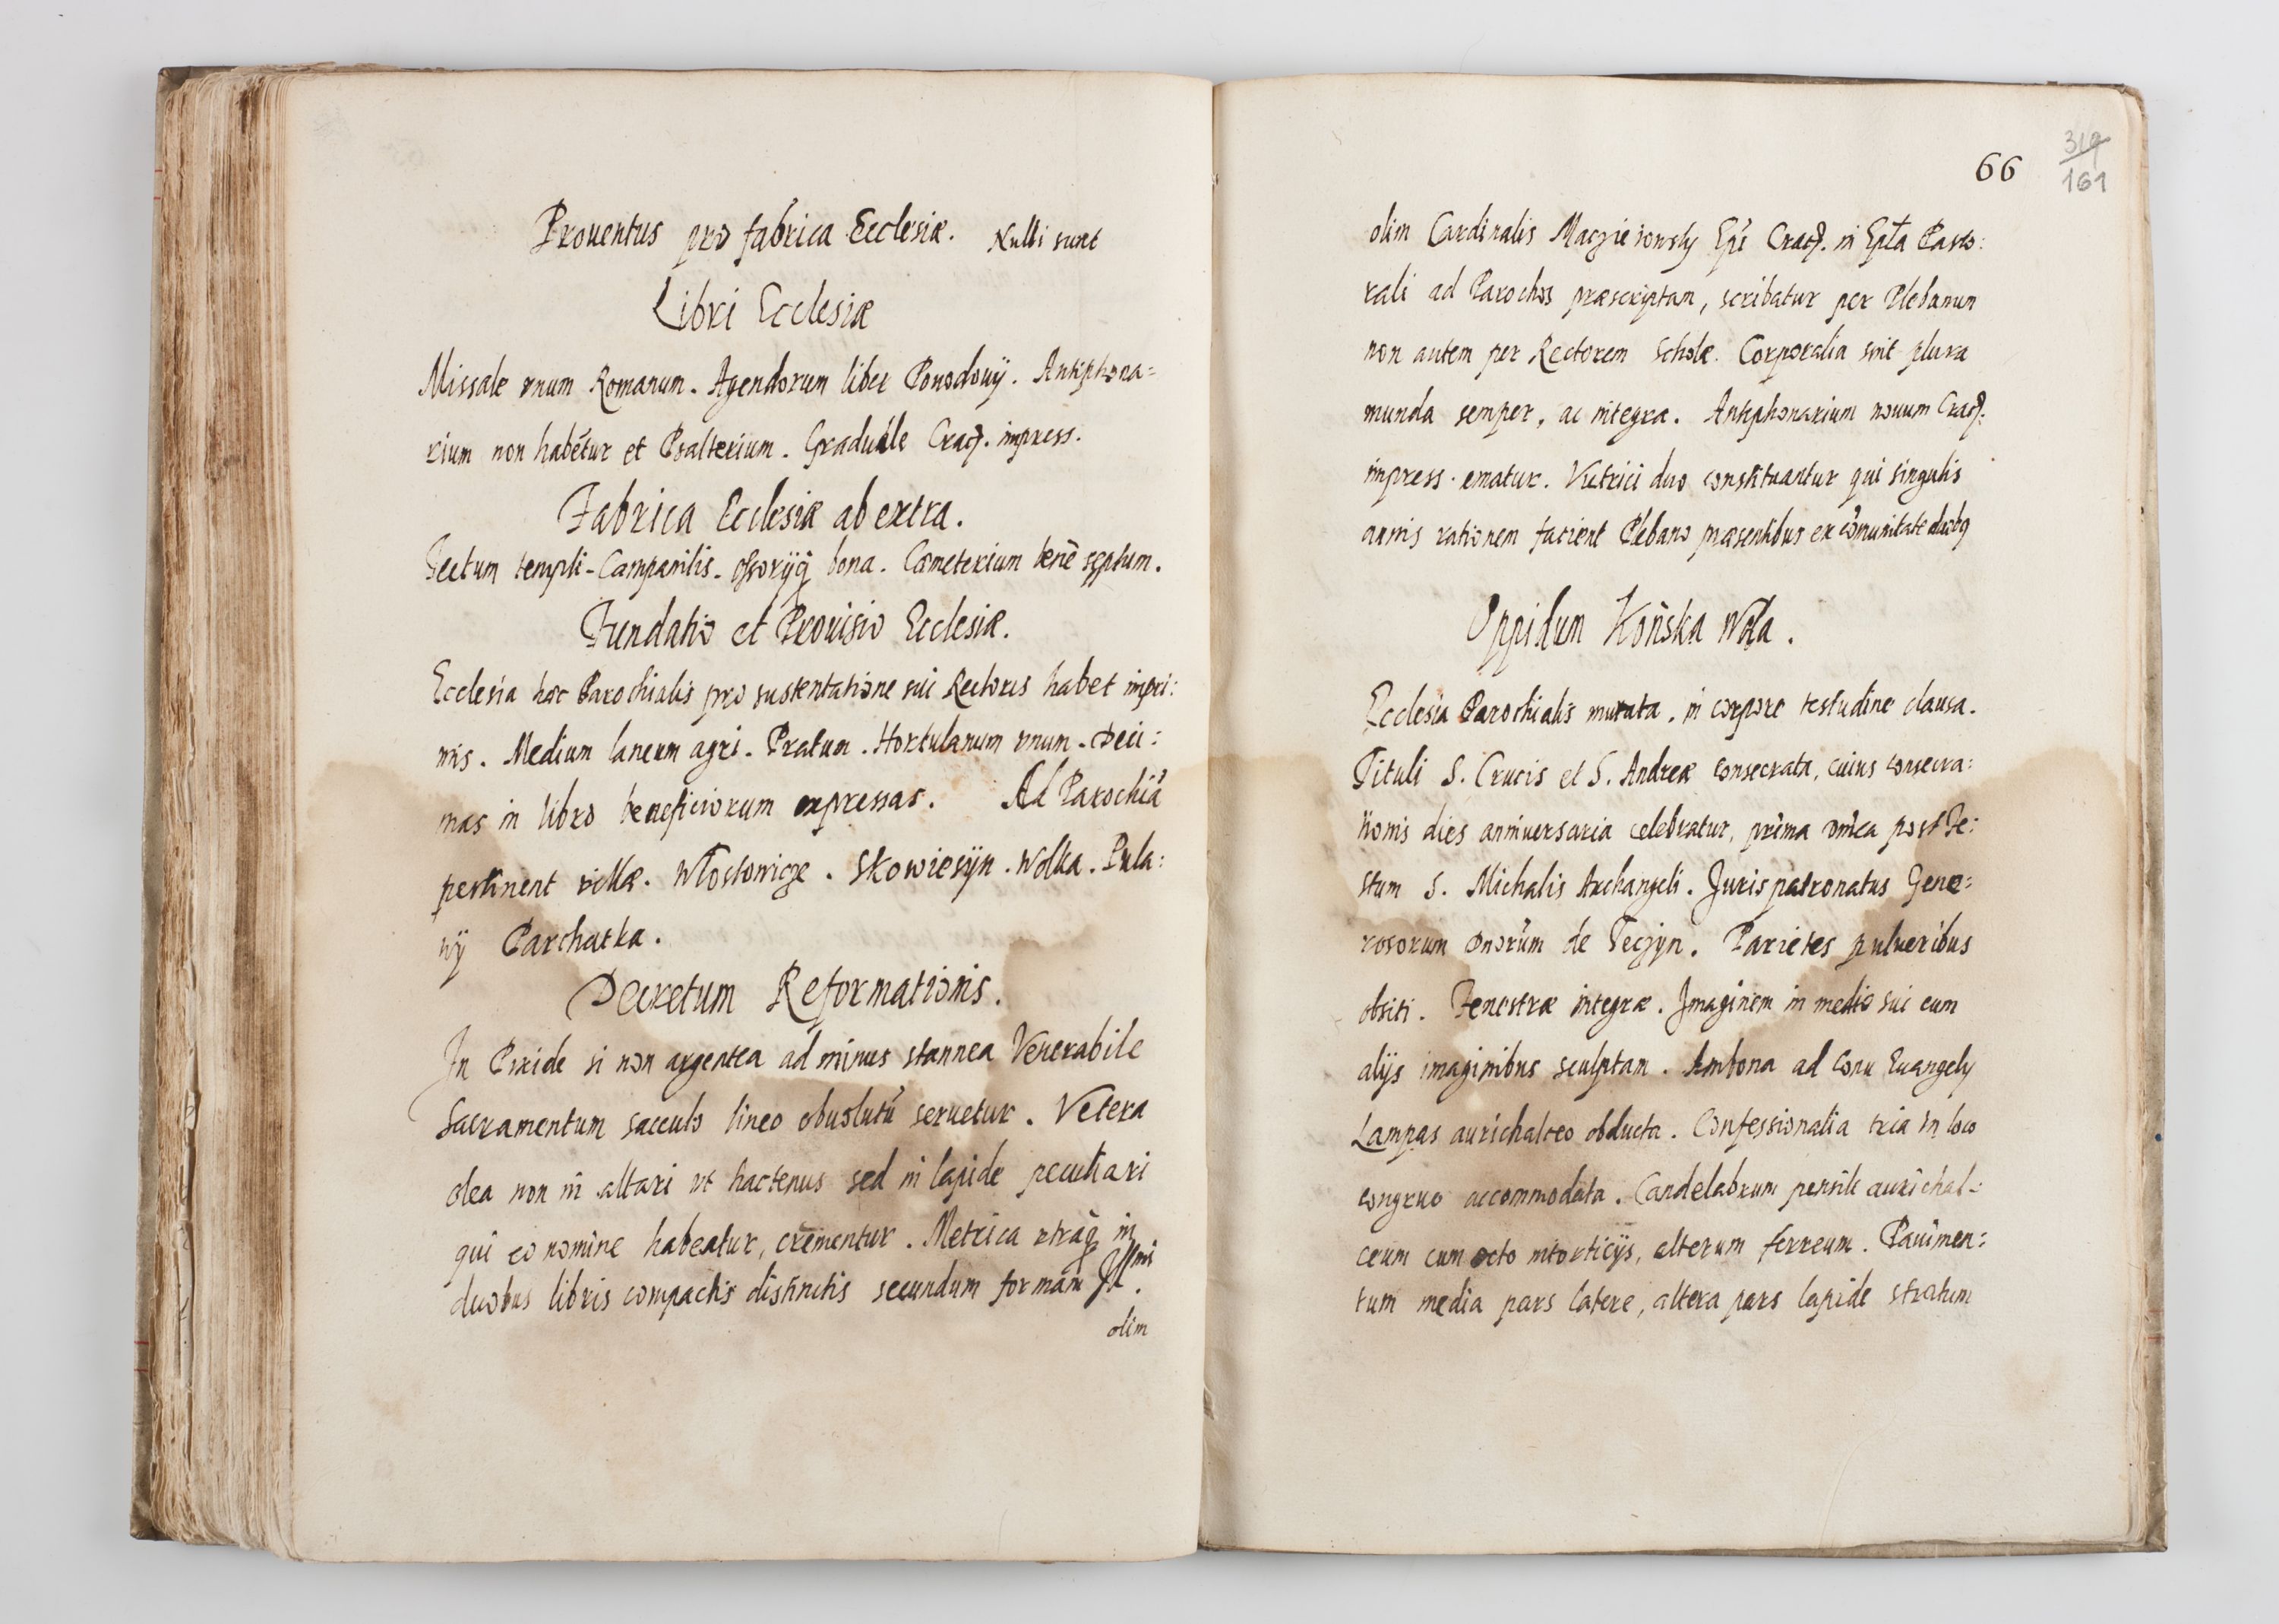 Prouentus pro fabrica Ecclesiæ. Nulli sunt
Libri Ecclesiæ
Missale vnum Romanum. Agendorum liber Pouodouij. Antiphona=
rium non habetur et Psalterium. Graduale Crac. impress.
Fabrica Ecclesiæ ab extra.
Tectum templi - Campanilis - Ossorijq bona. Cæmeterium benè septum.
Fundatio et Prouisio Ecclesiæ.
Ecclesia hæc Parochialis pro sustentatione sui Rectoris habet inpri:
mis. Medium laneum agri. Pratum. Hortulanum vnum. Deci:
mas in libro beneficiorum expressas. Ad Parochiã
pertinent villæ. Włostowicze. Skowiesÿn. Wolka. Pula:
wÿ Parchatka.
Decretum Reformationis.
In Pixide si non argentea ad minus stannea Venerabile
Sacramentum sacculo lineo obuolutũ seruetur. Vetera
olea non in altari vt hactenus sed in lapide peculiari
qui eo nomine habeatur, crementur. Metrica vtraq in
duobus libris compactis distinctis secundum formam Illmi.
olim
66
319
161
olim Cardinalis Maczieiowsky Epi Crac. in Epla Pasto:
rali ad Parochos præscriptam, scribatur per Plebanum
non autem per Rectorem Scholæ. Corporalia sint plura
munda semper, ac integra. Antiphonarium nouum Crac.
impress. ematur. Vitrici duo constituantur qui singulis
annis rationem facient Plebano præsentibus ex cõmunitate duobq
Oppidum Końska Wola.
Ecclesia Parochialis murata, in corpore testudine clausa.
Tituli S. Crucis et S. Andreæ consecrata, cuius consecra:
tionis dies anniuersaria celebratur, prima vnica post Fe:
stum S. Michalis Archangeli. Juris patronatus Gene=
rosorum Dnorũm de Teczyn. Parietes pulueribus
obsiti. Fenestræ integræ. Imaginem in medio sui cum
alijs imaginibus sculptam. Ambona ad Cornu Euangely
Lampas aurichalceo obducta. Confessionalia tria in loco
congruo accommodata. Candelabrum pensile aurichal=
ceum cum octo intorticijs, alterum ferreum. Pauimen:
tum media pars latere, altera pars lapide stratum